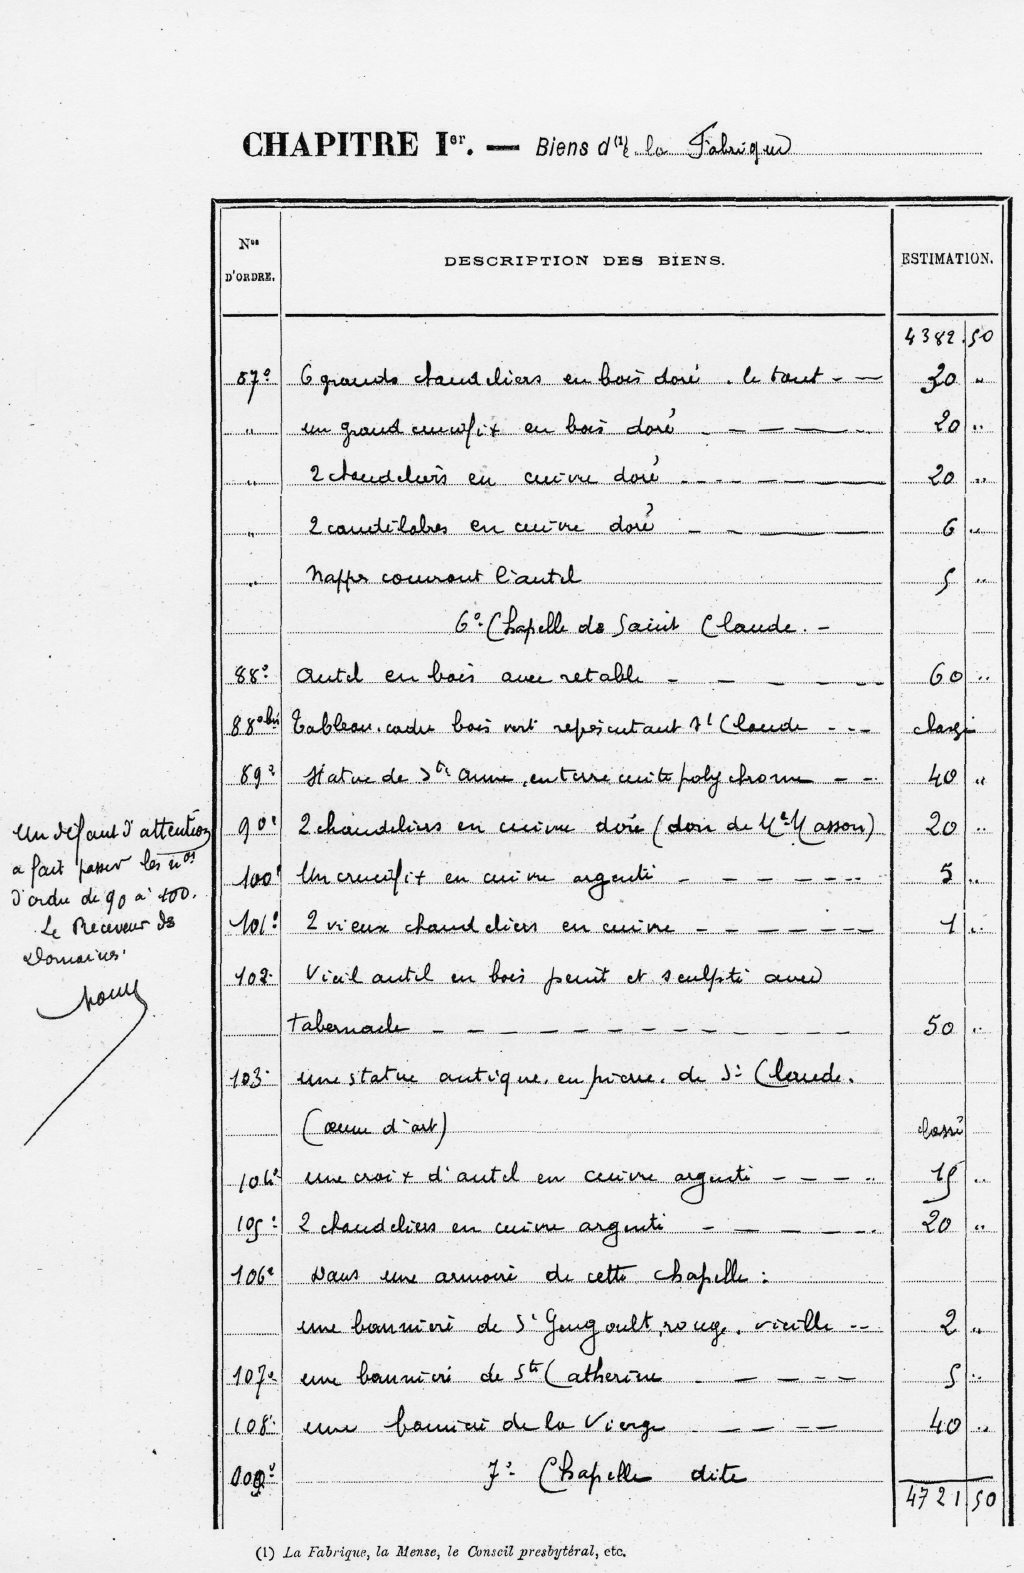 CHAPITRE Ier. — Biens d(1)e la Fabrique
Nos D'ORDRE. DESCRIPTION DES BIENS. ESTIMATION.
4382 50
87° 6 grands chandeliers en bois doré. le tout - — 30 "
" un grand crucifix en bois doré - — — — 20 "
" 2 chandeliers en cuivre doré - - - — — 20 "
" 2 candélabres en cuivre doré - — — 6 "
" Nappes couvrant l'autel 5 "
6° Chapelle de Saint Claude. -
88° Autel en bois avec retable - - — — — 60 "
88° bis Tableau. cadre bois vert représentant St Claude - - - classé
89° Statue de Ste Anne, en terre cuite polychrome - - 40 "
90° 2 chandeliers en cuivre doré (don de Me Masson) 20 "
100° Un crucifix en cuivre argenté - - - - - - 5 "
101° 2 vieux chandeliers en cuivre - - - - - - - 1 "
102° Vieil autel en bois peint et sculpté avec
tabernacle - - - - - - - - - - - 50 "
103° une statue antique. en pierre. de St Claude.
(œuvre d'art) classé
104° une croix d'autel en cuivre argenté - - - - 15 "
105° 2 chandeliers en cuivre argenté - - — — - 20 "
106° Dans une armoire de cette chapelle :
une bannière de St Gengoult, rouge. vieille - - 2 "
107° une bannière de Ste Catherine - - - - - 5 "
108° une bannière de la Vierge - - - - 40 "
109° 7° Chapelle dite
4721 50
Un défaut d'attention
a fait passer les nos
d'ordre de 90 à 100.
Le Receveur des
Domaines.
(1) La Fabrique, la Mense, le Conseil presbytéral, etc.